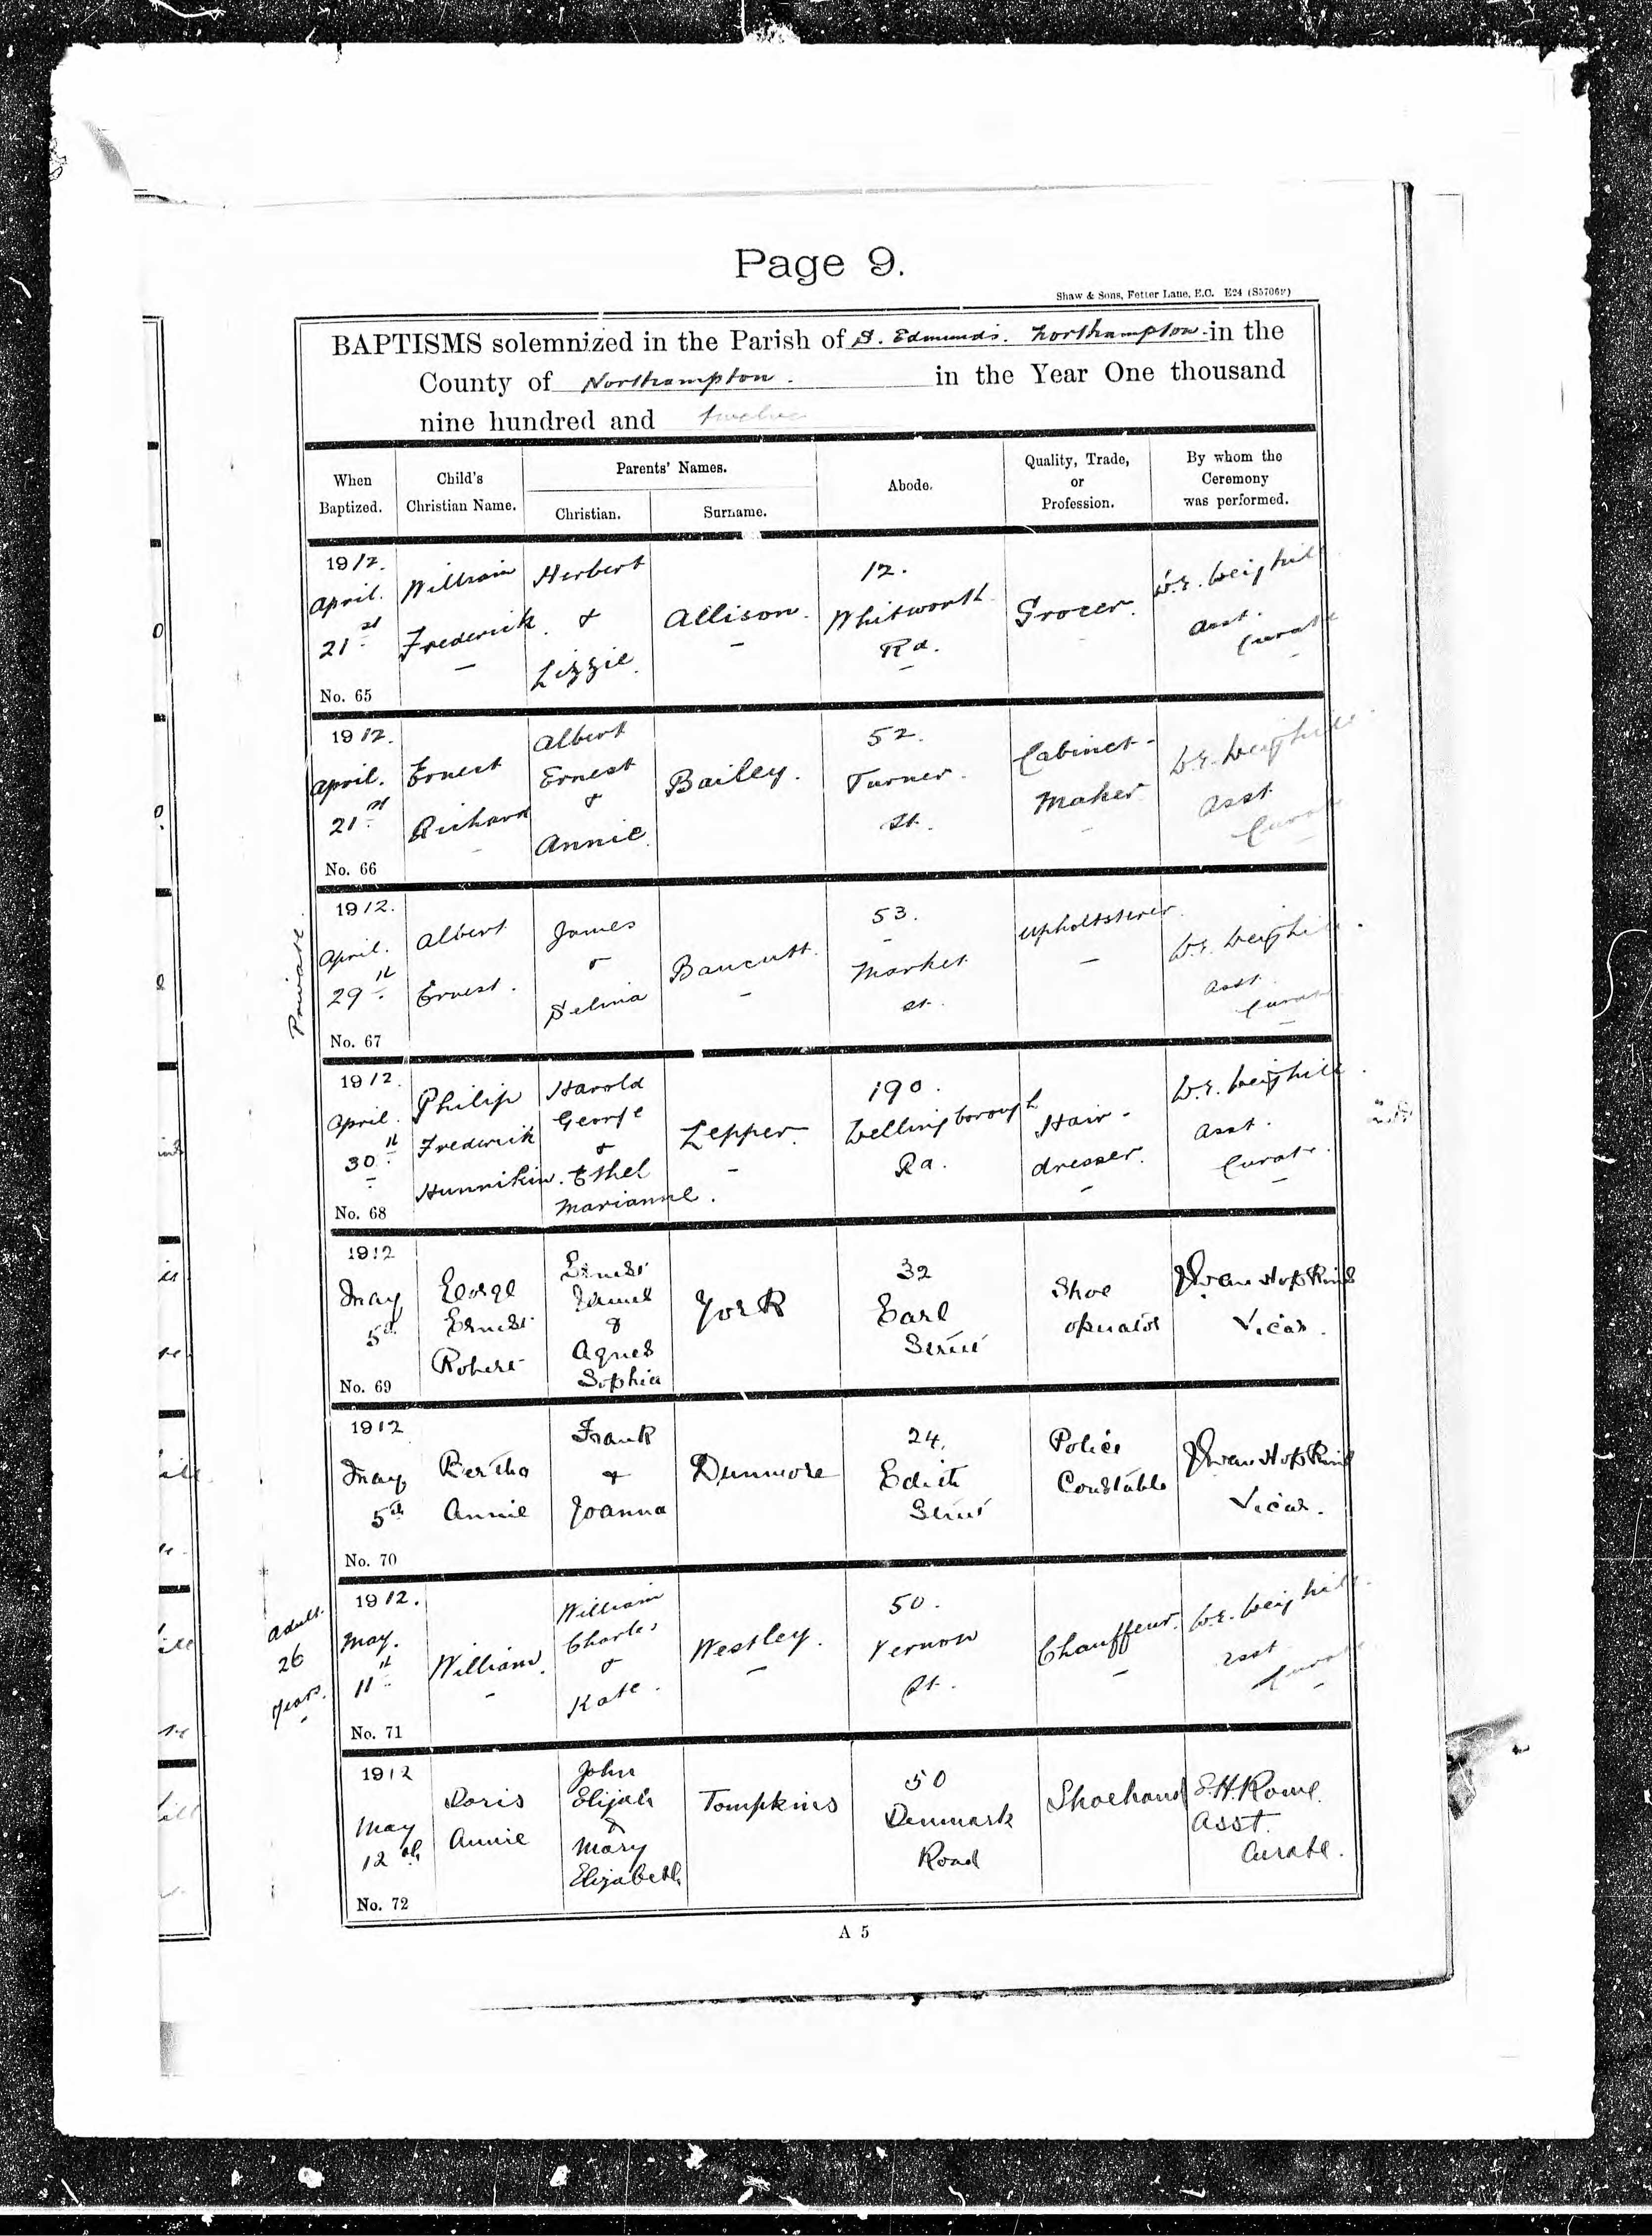 Page 9.
Shaw & Sons, Fetter Lane, E.C. E24
BAPTISMS solemnized in the Parish of S. Edmunds. Northampton in the
County of Northampton. in the Year One thousand
nine hundred and twelve
When
Baptized.
Child's
Christian Name.
Parents' Names.
Christian.
Surname.
Abode.
Quality, Trade,
or
Profession.
By whom the
Ceremony
was performed.
1912.
April.
21st
No. 65
William
Frederick
Herbert
&
Lizzie.
Allison.
12.
Whitworth
Rd.
Grocer.
W.E. Weighill
Asst.
Curate
1912.
April.
21st
No. 66
Ernest
Richard
Albert
Ernest
&
Annie.
Bailey.
52.
Turner.
St.
Cabinet-
Maker
W.E. Weighill
Asst
Curate
Private.
1912.
April.
29th
No. 67
Albert
Ernest.
James
&
Selina
Baucutt.
53.
Market
St.
Upholtsterer.
W.E. Weighill.
Asst.
Curate
1912.
April.
30th
No. 68
Philip
Frederick
Hunnikin.
Harold
George
&
Ethel
Marianne.
Lepper.
190.
Wellingborough
Rd.
Hair-
dresser.
W.E. Weighill.
Asst.
Curate.
1912
May
5th
No. 69
George
Ernest
Robert
Ernest
&
Agnes
Sophia
York
32
Earl
Street
Shoe
operator
Hopkins
Vicar.
1912
May
5th
No. 70
Bertha
Annie
Frank
&
Joanna
Dunmore
24,
Edith
Street
Police
Constable
Hopkins
Vicar.
Adult.
26
years.
1912.
May.
11th
No. 71
William.
William
Charles
&
Kate.
Westley.
50.
Vernon
St.
Chauffeur.
W.E. Weighill.
Asst
Curate
1912
May
12th
No. 72
Doris
Annie
John
Elijah
&
Mary
Elizabeth
Tompkins
50
Denmark
Road
Shoehand
E.H. Rowe.
Asst.
Curate.
A 5